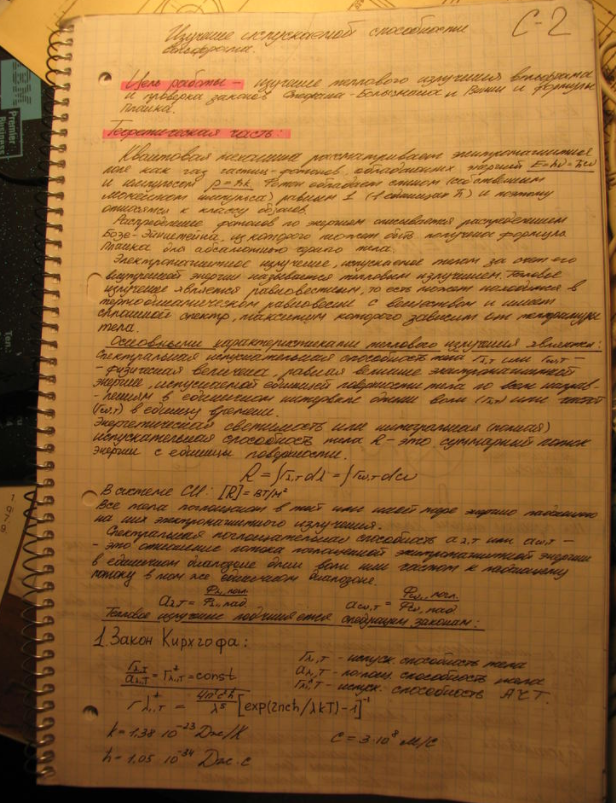 С-2
Изучение испускательной способности
вольфрама.
Цель работы – изучение теплового излучения вольфрама
и проверка законов Стефана-Больцмана и Вина и формулы
Планка.
Теоретическая часть:
Квантовая механика рассматривает электромагнитное
поле как газ частиц-фотонов, обладающих энергией E=hν=ħω
и импульсом p=ħk. Фотон обладает спином (собственным
моментом импульса) равным 1 (1 единица ħ) и поэтому
относится к классу бозонов.
Распределение фотонов по энергиям описывается распределением
Бозе-Эйнштейна, из которого может быть получена формула
Планка для абсолютно чёрного тела.
Электромагнитное излучение, испускаемое телом за счёт его
внутренней энергии называется тепловым излучением. Тепловое
излучение является равновесным, то есть может находиться в
термодинамическом равновесии с веществом и имеет
сплошной спектр, максимум которого зависит от температуры
тела.
Основными характеристиками теплового излучения являются:
Спектральная испускательная способность тела rλ,T или rω,T –
- физическая величина, равная величине электромагнитной
энергии, испускаемой единицей поверхности тела по всем направ-
-лениям в единичном интервале длины волн (rλ,T) или частот
(rω,T) в единицу времени.
Энергетическая светимость или интегральная (полная)
испускательная способность тела R – это суммарный поток
энергии с единицы поверхности.
R = ∫rλ,T dλ = ∫rω,T dω
В системе СИ: [R]=Вт/м²
Все тела поглощают в той или иной мере энергию падающего
на них электромагнитного излучения.
Спектральная поглощательная способность aλ,T или aω,T –
- это отношение потока поглощённой электромагнитной энергии
в единичном диапазоне длин волн или частот к падающему
потоку в том же единичном диапазоне.
aλ,T = Pλ, погл. / Pλ, пад. aω,T = Pω, погл. / Pω, пад
Тепловое излучение подчиняется следующим законам:
1. Закон Кирхгофа:
rλ,T / aλ,T = r*λ,T = const
r*λ,T = 4π²c²ħ/λ⁵ [exp(2πcħ/λkT)-1]⁻¹
rλ,T - испуск. способность тела
aλ,T - поглощ. способность тела
r*λ,T - испуск. способность АЧТ.
k = 1,38·10⁻²³ Дж/К c = 3·10⁸ м/с
ħ = 1,05·10⁻³⁴ Дж·с
Premier
Business